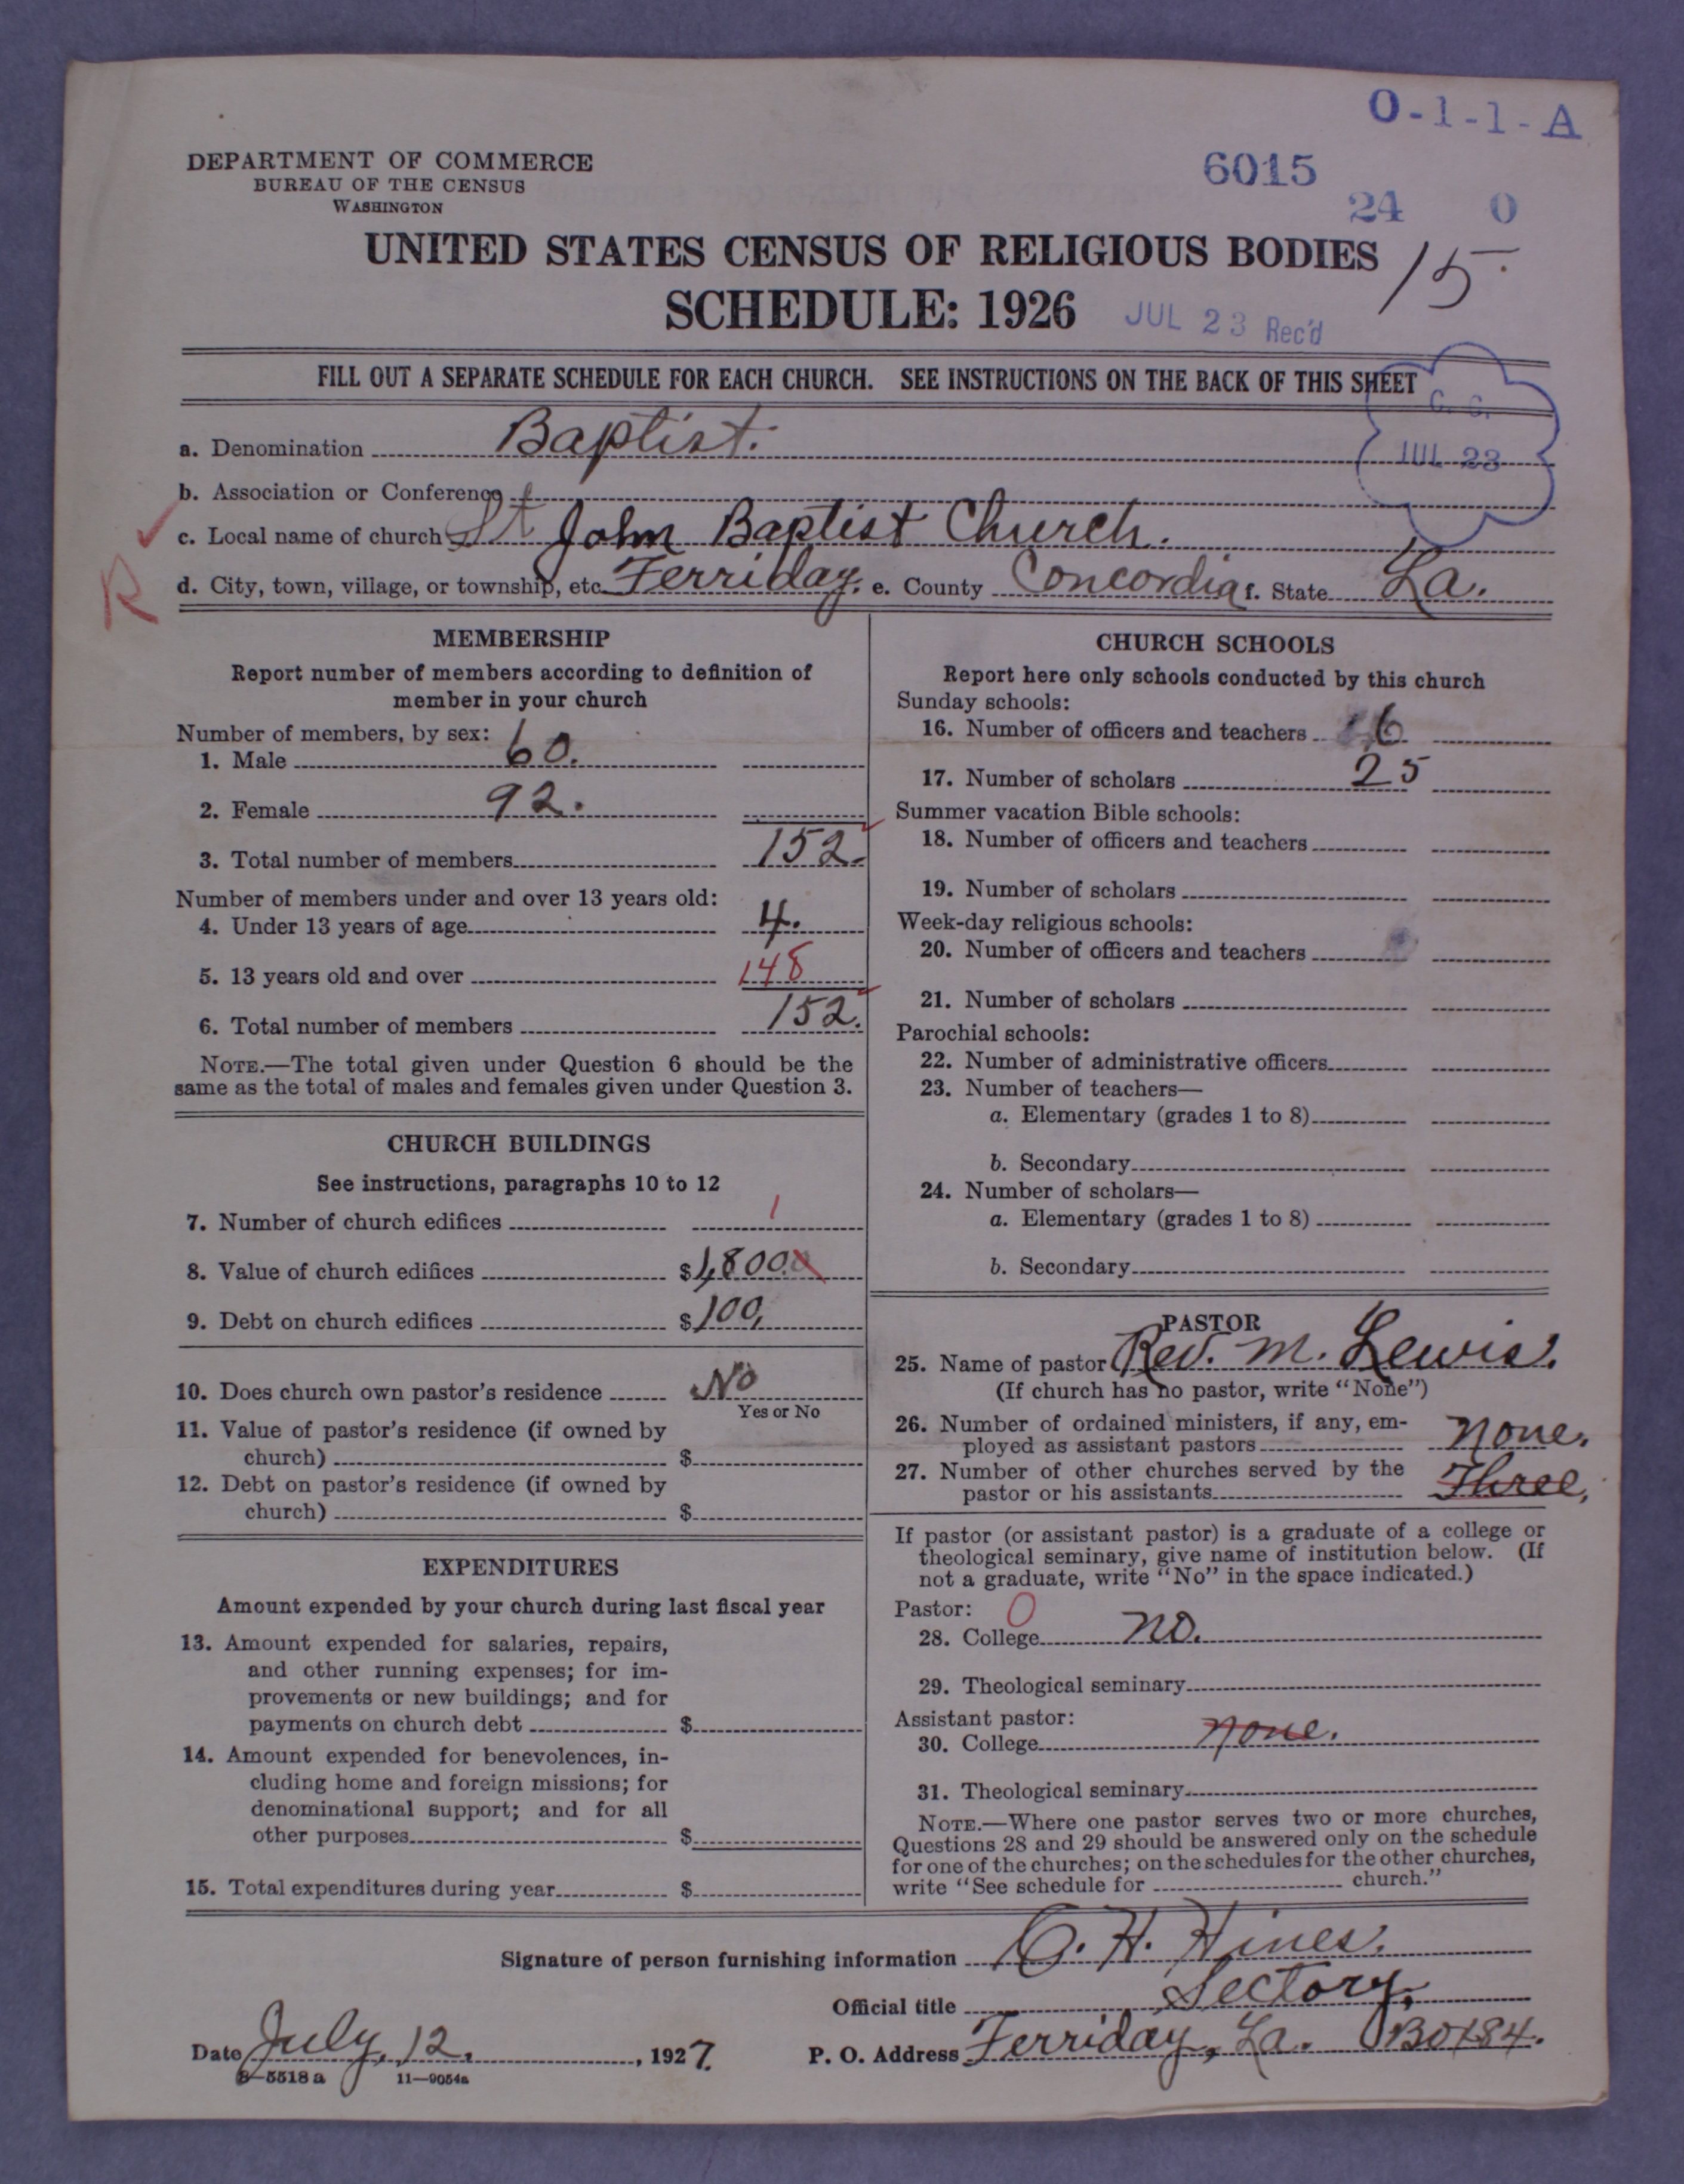 O-1-1-A
DEPARTMENT OF COMMERCE
BUREAU OF THE CENSUS
WASHINGTON
6015
24 0
UNITED STATES CENSUS OF RELIGIOUS BODIES
15.
SCHEDULE: 1926
JUL 23 Rec'd
FILL OUT A SEPARATE SCHEDULE FOR EACH CHURCH. SEE INSTRUCTIONS ON THE BACK OF THIS SHEET
C. C.
JUL 23
a. Denomination Baptist.
b. Association or Conference
c. Local name of church St John Baptist Church.
R
d. City, town, village, or township, etc. Ferriday. e. County Concordia f. State La.
MEMBERSHIP
Report number of members according to definition of
member in your church
Number of members, by sex:
1. Male 60.
2. Female 92.
3. Total number of members 152.
Number of members under and over 13 years old:
4. Under 13 years of age 4.
5. 13 years old and over 148
6. Total number of members 152.
NOTE.—The total given under Question 6 should be the
same as the total of males and females given under Question 3.
CHURCH BUILDINGS
See instructions, paragraphs 10 to 12
7. Number of church edifices 1
8. Value of church edifices $1,800.
9. Debt on church edifices $100,
10. Does church own pastor's residence No
Yes or No
11. Value of pastor's residence (if owned by
church) $
12. Debt on pastor's residence (if owned by
church) $
EXPENDITURES
Amount expended by your church during last fiscal year
13. Amount expended for salaries, repairs,
and other running expenses; for im-
provements or new buildings; and for
payments on church debt $
14. Amount expended for benevolences, in-
cluding home and foreign missions; for
denominational support; and for all
other purposes $
15. Total expenditures during year $
CHURCH SCHOOLS
Report here only schools conducted by this church
Sunday schools:
16. Number of officers and teachers 6
17. Number of scholars 25
Summer vacation Bible schools:
18. Number of officers and teachers
19. Number of scholars
Week-day religious schools:
20. Number of officers and teachers
21. Number of scholars
Parochial schools:
22. Number of administrative officers
23. Number of teachers—
a. Elementary (grades 1 to 8)
b. Secondary
24. Number of scholars—
a. Elementary (grades 1 to 8)
b. Secondary
PASTOR
25. Name of pastor Rev. M. Lewis.
(If church has no pastor, write "None")
26. Number of ordained ministers, if any, em-
ployed as assistant pastors None.
27. Number of other churches served by the
pastor or his assistants Three,
If pastor (or assistant pastor) is a graduate of a college or
theological seminary, give name of institution below. (If
not a graduate, write "No" in the space indicated.)
Pastor: 0
28. College no.
29. Theological seminary
Assistant pastor:
30. College none.
31. Theological seminary
NOTE.—Where one pastor serves two or more churches,
Questions 28 and 29 should be answered only on the schedule
for one of the churches; on the schedules for the other churches,
write "See schedule for church."
Signature of person furnishing information O. H. Hines.
Official title Sectory,
Date July, 12, 1927.
P. O. Address Ferriday, La. Box84.
8—5518 a 11—9054a